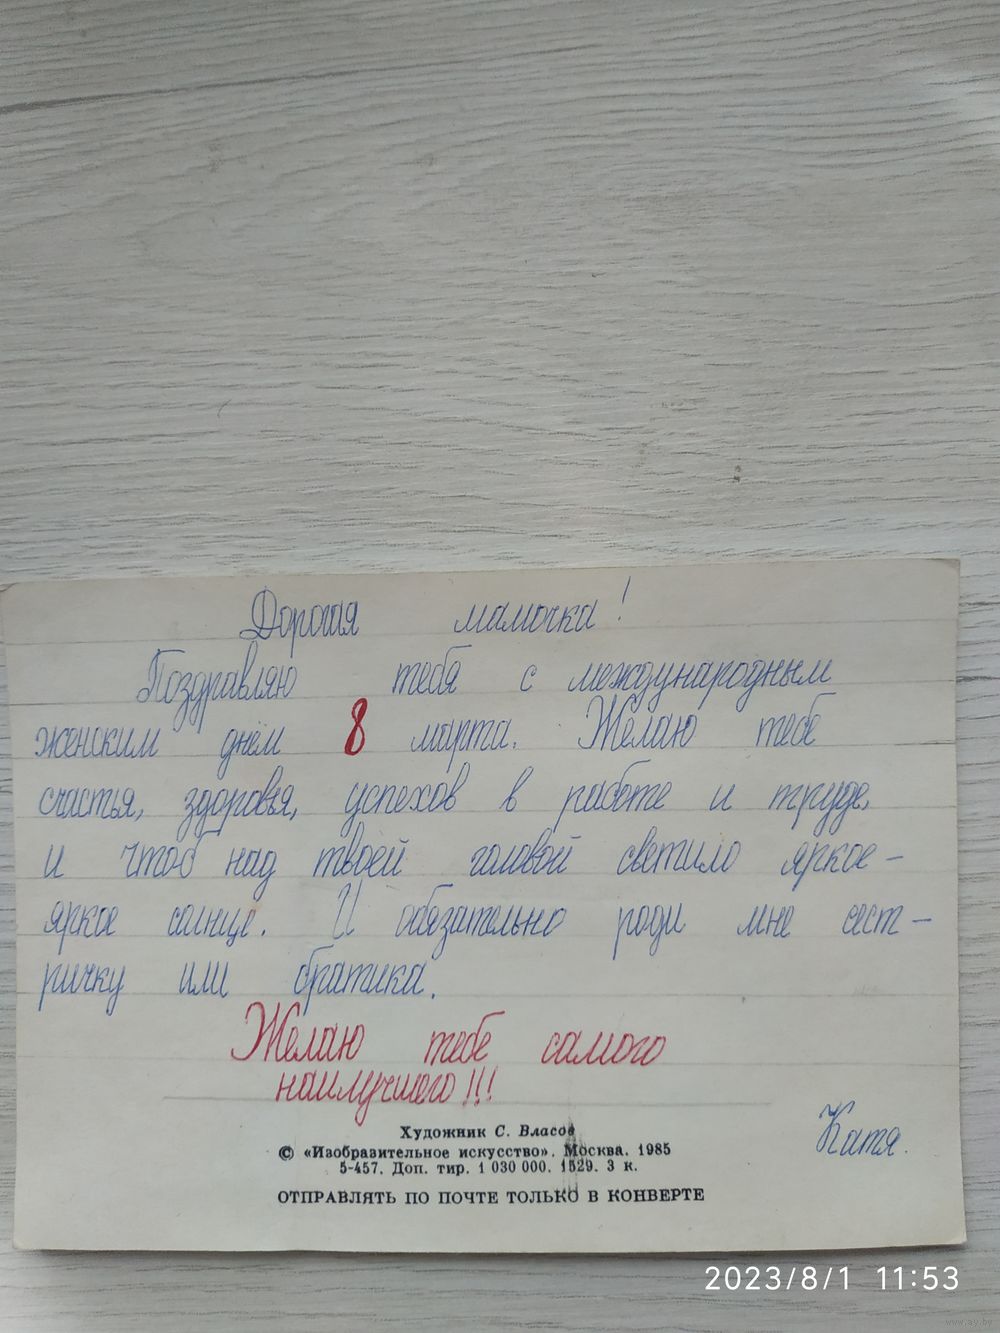 Дорогая мамочка!
Поздравляю тебя с международным
женским днём 8 марта. Желаю тебе
счастья, здоровья, успехов в работе и труде,
и чтоб над твоей головой светило яркое-
яркое солнце. И обязательно роди мне сест-
ричку или братика.
Желаю тебе самого
наилучшего!!!
Катя.
Художник С. Власов
© «Изобразительное искусство». Москва. 1985
5-457. Доп. тир. 1 030 000. 1529. 3 к.
ОТПРАВЛЯТЬ ПО ПОЧТЕ ТОЛЬКО В КОНВЕРТЕ
2023/8/1 11:53
www.ay.by